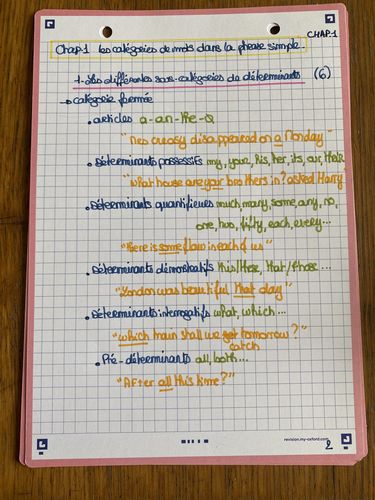 CHAP.1
Chap.1 les catégories de mots dans la phrase simple.
1. Les différentes sous-catégories de déterminants (6)
→ catégorie fermée
• articles a-an-the-Ø
"Mrs Creasy disappeared on a Monday"
• Déterminants possessifs my, your, his, her, its, our, their
"What house are your brothers in? asked Harry
• Déterminants quantifieurs much, many, some, any, no,
one, two, fifty, each, every...
"There is some flaw in each of us"
• Déterminants démonstratifs this/these, that/those...
"London was beautiful that day"
• Déterminants interrogatifs what, which...
"which train shall we get tomorrow?"
catch
• Pré-déterminants all, both...
"After all this time?"
revision.my-oxford.com
2